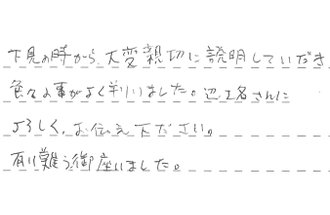 下見の時から、大変親切に説明していだき
色々な事がよく判りました。辺さんに
よろしく、お伝え下ださい。
有り難う御座いました。